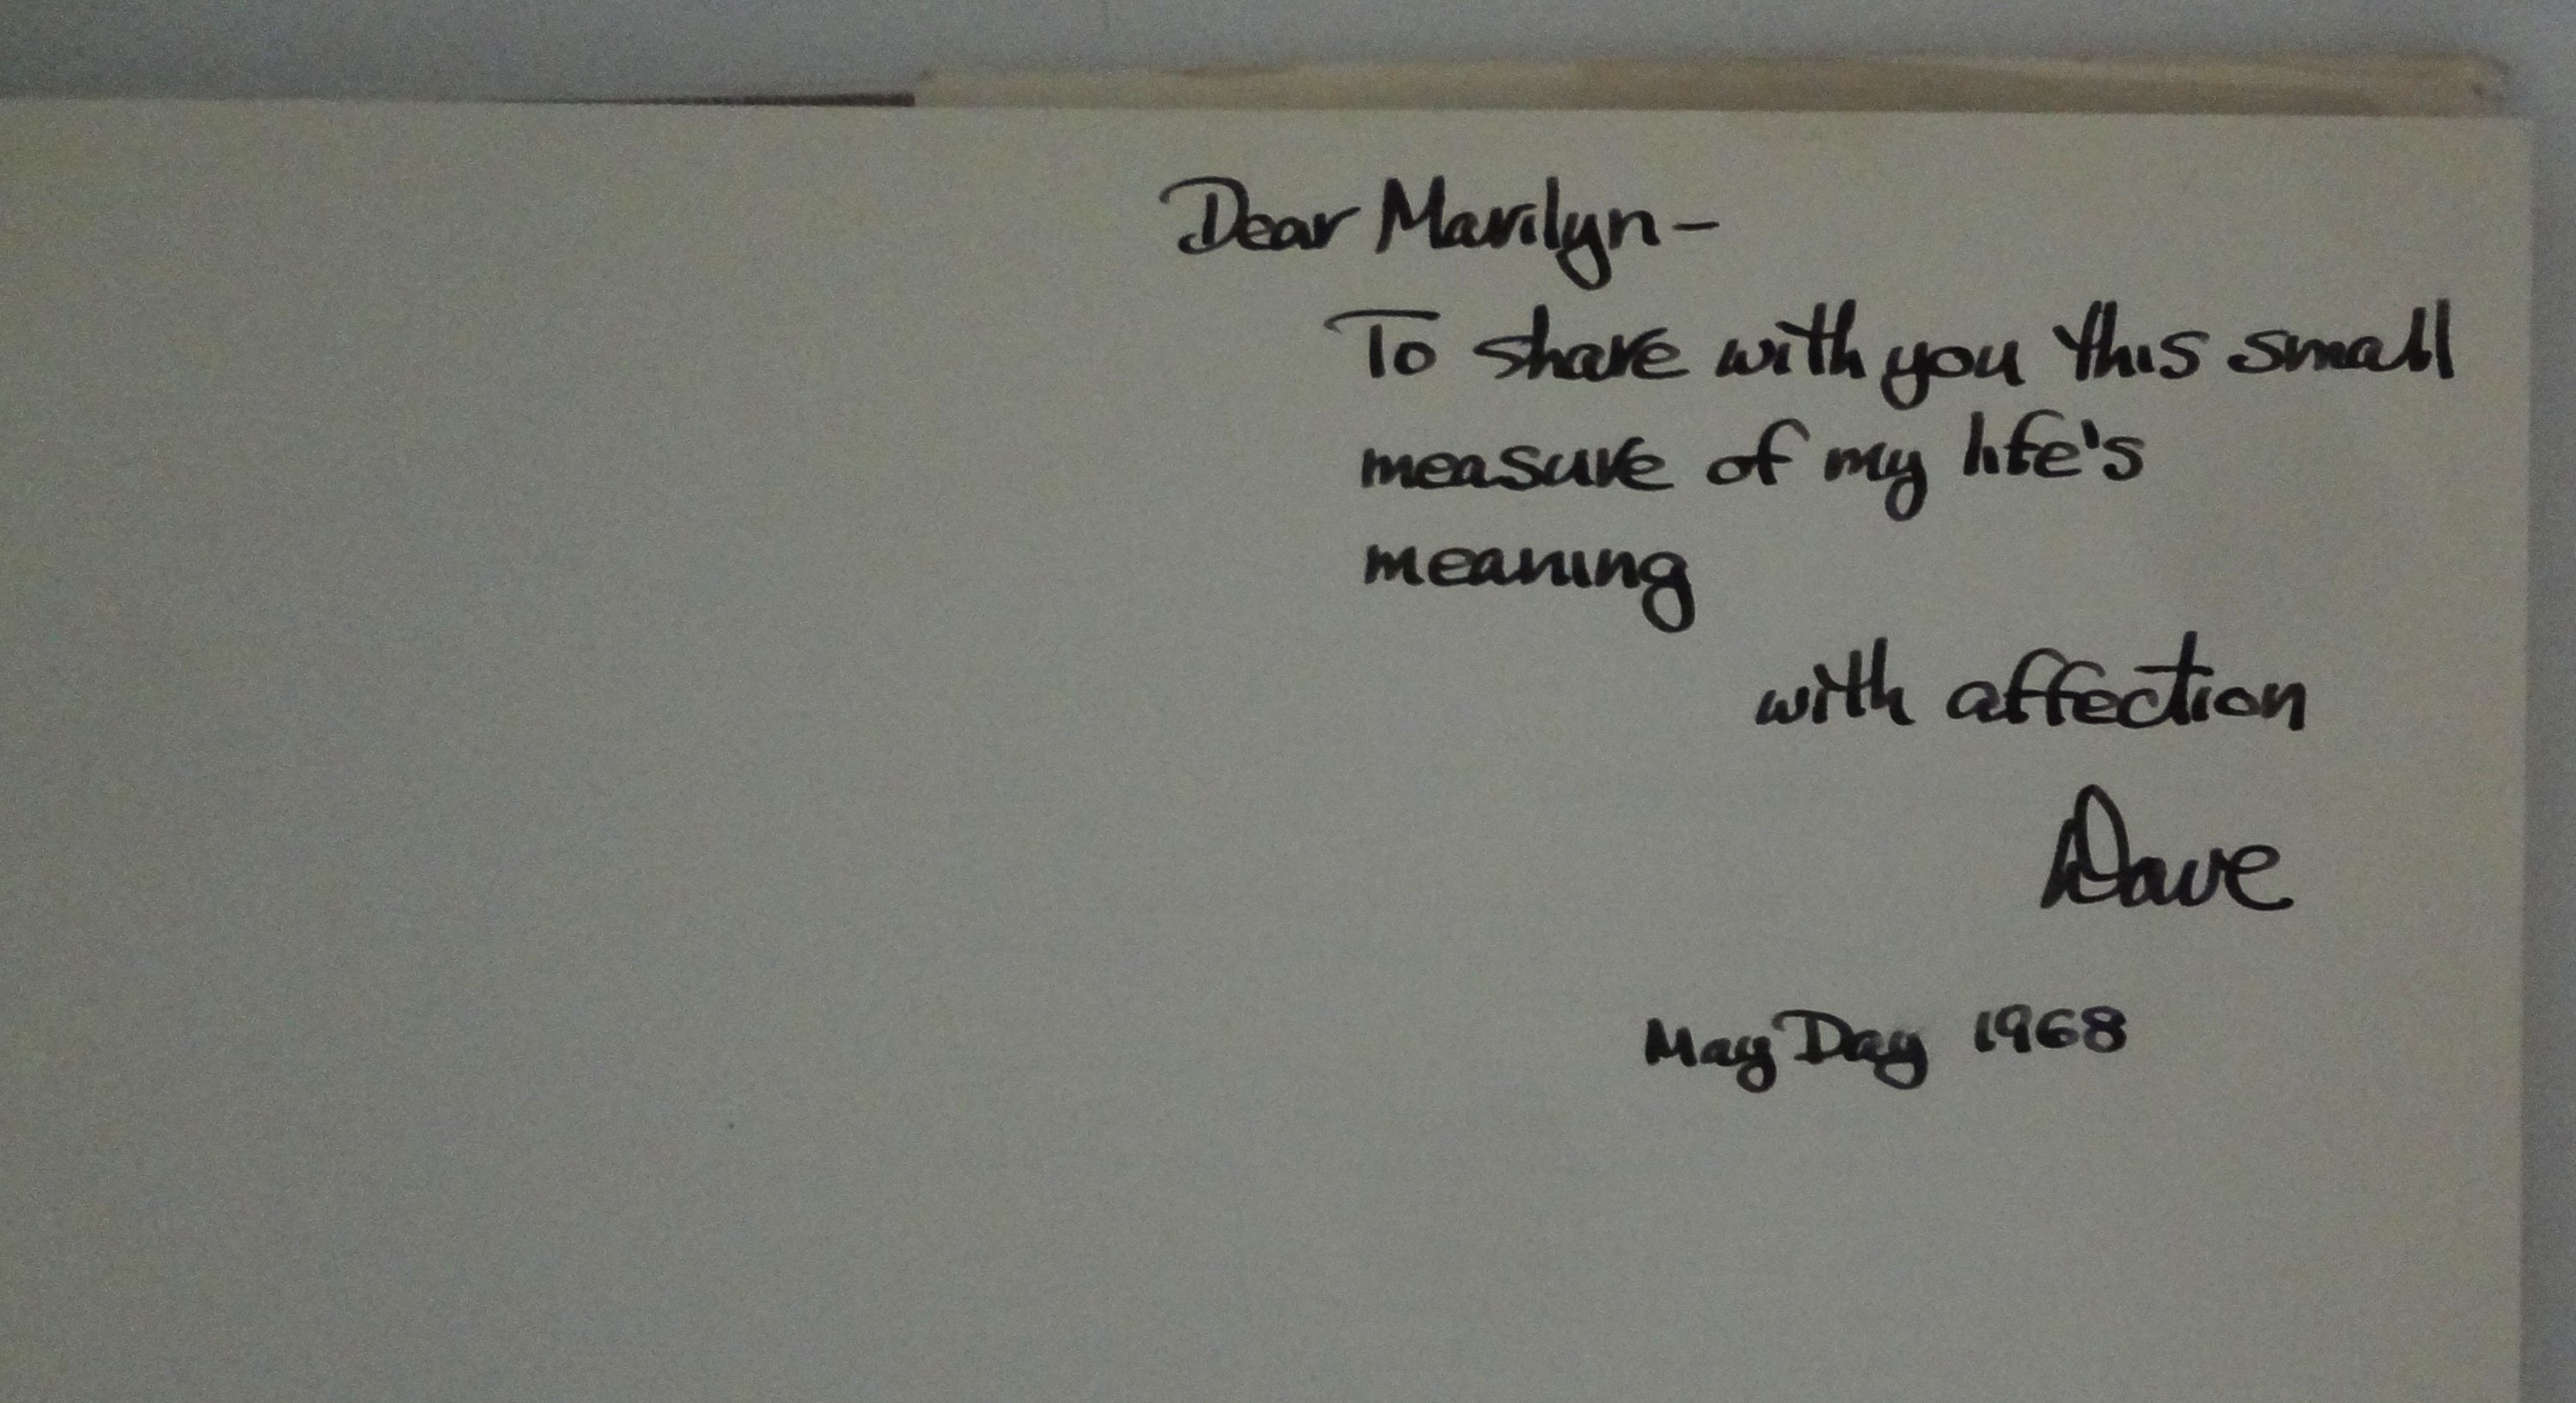 Dear Marilyn-
To share with you this small
measure of my life's
meaning
with affection
Dave
May Day 1968